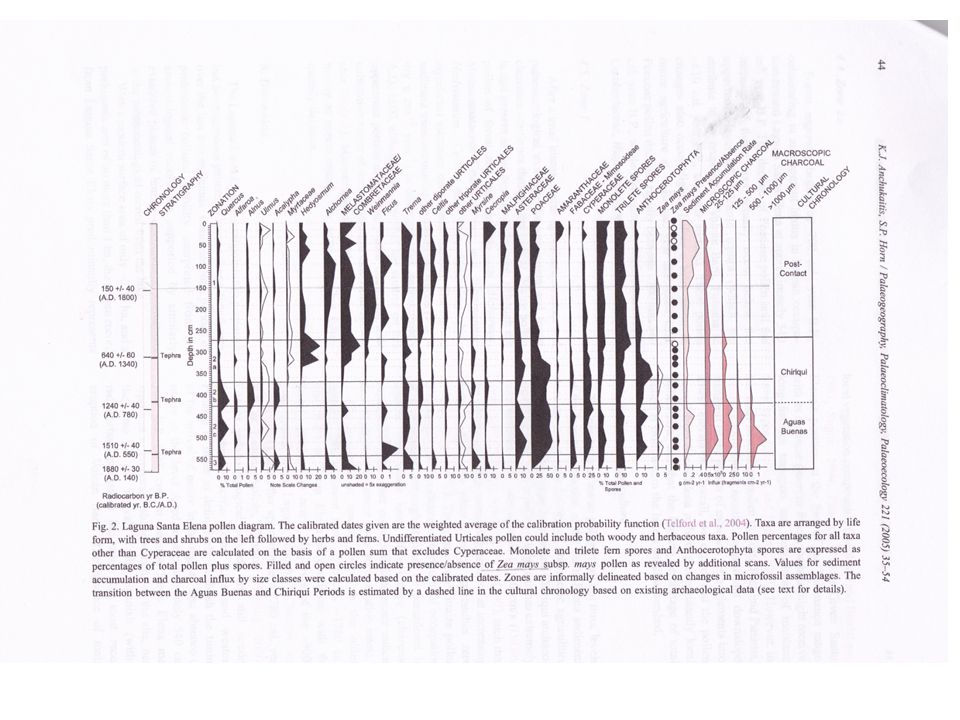 44
K.J. Anchukaitis, S.P. Horn / Palaeogeography, Palaeoclimatology, Palaeoecology 221 (2005) 35–54
CHRONOLOGY
STRATIGRAPHY
ZONATION
Quercus
Alfaroa
Alnus
Ulmus
Acalypha
Myrtaceae
Hedyosmum
Alchornea
MELASTOMATACEAE/
COMBRETACEAE
Weinmannia
Ficus
Trema
other diporate URTICALES
Celtis
other triporate URTICALES
other URTICALES
Myrsine
Cecropia
MALPIGHIACEAE
ASTERACEAE
POACEAE
AMARANTHACEAE
FABACEAE - Mimosoideae
CYPERACEAE
MONOLETE SPORES
TRILETE SPORES
ANTHOCEROTOPHYTA
Zea mays
Zea mays Presence/Absence
Sediment Accumulation Rate
MICROSCOPIC CHARCOAL
MACROSCOPIC
CHARCOAL
25-125 µm
125 - 500 µm
500 - 1000 µm
>1000 µm
CULTURAL
CHRONOLOGY
Depth in cm
0
50
100
150
200
250
300
350
400
450
500
550
1
2
a
2
b
2
c
3
150 +/- 40
(A.D. 1800)
640 +/- 60
(A.D. 1340)
Tephra
1240 +/- 40
(A.D. 780)
Tephra
1510 +/- 40
(A.D. 550)
Tephra
1880 +/- 30
(A.D. 140)
Radiocarbon yr B.P.
(calibrated yr. B.C./A.D.)
Post-
Contact
Chiriqui
Aguas
Buenas
% Total Pollen
Note Scale Changes
unshaded = 5x exaggeration
% Total Pollen and
Spores
g cm-2 yr-1
Influx (fragments cm-2 yr-1)
Fig. 2. Laguna Santa Elena pollen diagram. The calibrated dates given are the weighted average of the calibration probability function (Telford et al., 2004). Taxa are arranged by life
form, with trees and shrubs on the left followed by herbs and ferns. Undifferentiated Urticales pollen could include both woody and herbaceous taxa. Pollen percentages for all taxa
other than Cyperaceae are calculated on the basis of a pollen sum that excludes Cyperaceae. Monolete and trilete fern spores and Anthocerotophyta spores are expressed as
percentages of total pollen plus spores. Filled and open circles indicate presence/absence of Zea mays subsp. mays pollen as revealed by additional scans. Values for sediment
accumulation and charcoal influx by size classes were calculated based on the calibrated dates. Zones are informally delineated based on changes in microfossil assemblages. The
transition between the Aguas Buenas and Chiriquí Periods is estimated by a dashed line in the cultural chronology based on existing archaeological data (see text for details).